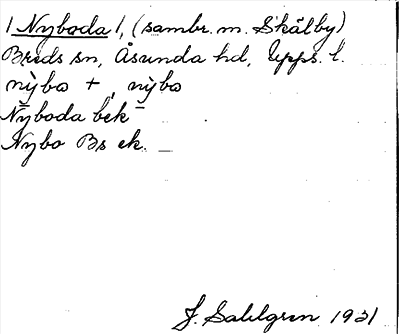 / Nyboda /, (sambr. m. Skälby)
Breds sn, Åsunda hd, Upps. l.
nỳbo +, nỳbo
Nyboda bek
Nybo Bs ek. —
J. Sahlgren 1931